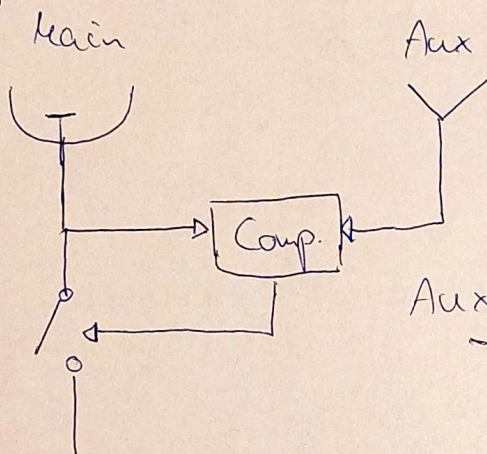 Main
Aux
Comp.
Aux